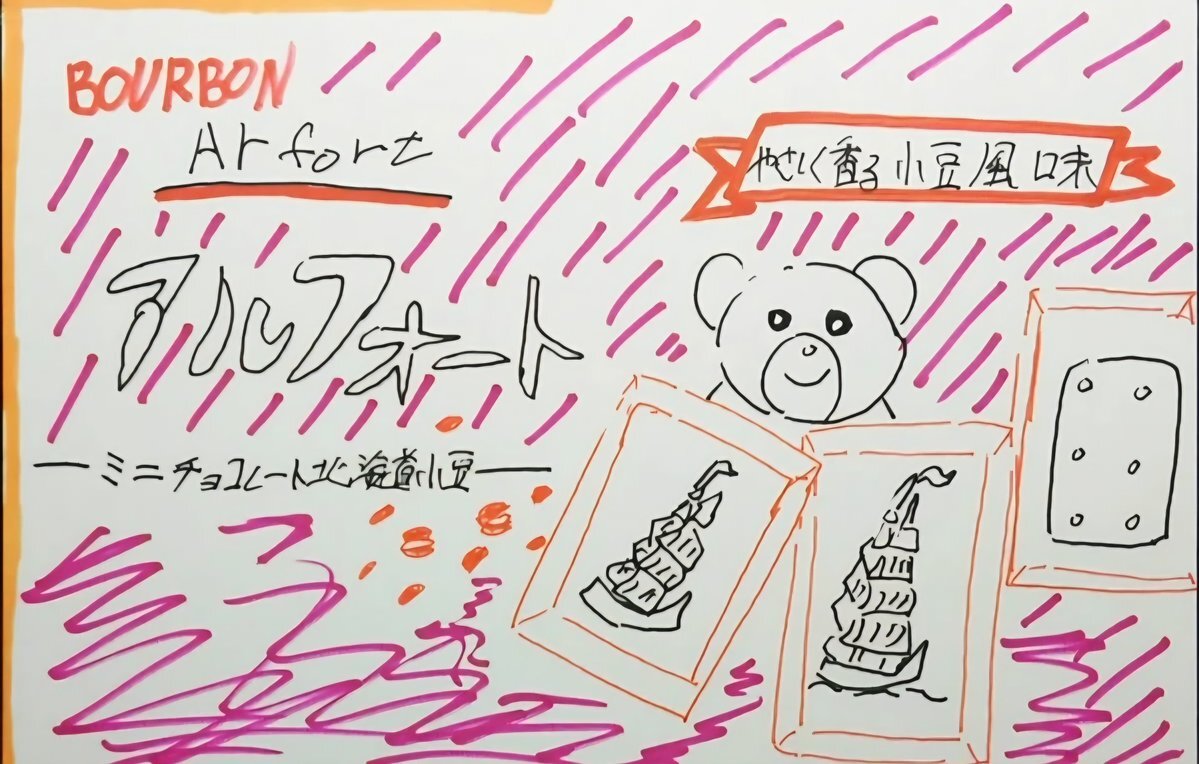 BOURBON
Arfort
やさしく香る小豆風味
アルフォート
ミニチョコレート北海道小豆